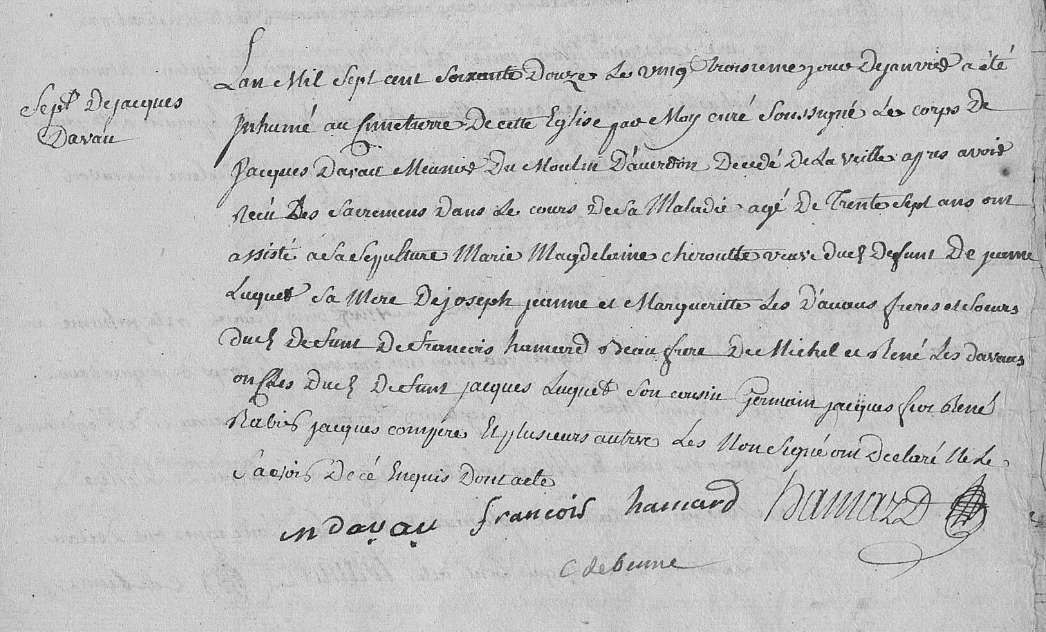 Sept. De jacques
Davau
Lan Mil Sept cent Soixante Douze Le vingt troisieme jour De janvier a été
Inhumé au Simetierre De cette Eglise par Moy curé Soussigné Le corps De
Jacques Davau Meunier Du Moulin D'averdon Decedé De La veille apres avoir
Recü Les Sacremens Dans Le cours De Sa Maladie agé De Trente Sept ans ont
assisté a Sa Sepulture Marie Magdeleine cheroutte veuve Dud. Defunt De jeanne
Luquet Sa Mere De joseph jeanne et Margueritte Les D'avaus freres et Soeurs
Dud. Defunt De francois hamard Beau frere De Michel et René Les Davaus
oncles Dud. Defunt jacques Luquet Son cousin Germain jacques René
Rabier jacques compere Et plusieurs autre Les Non Signé ont Declaré Ne Le
Savoir De Ce Enquis Dont acte
m davau francois hamard hamard
C debenne